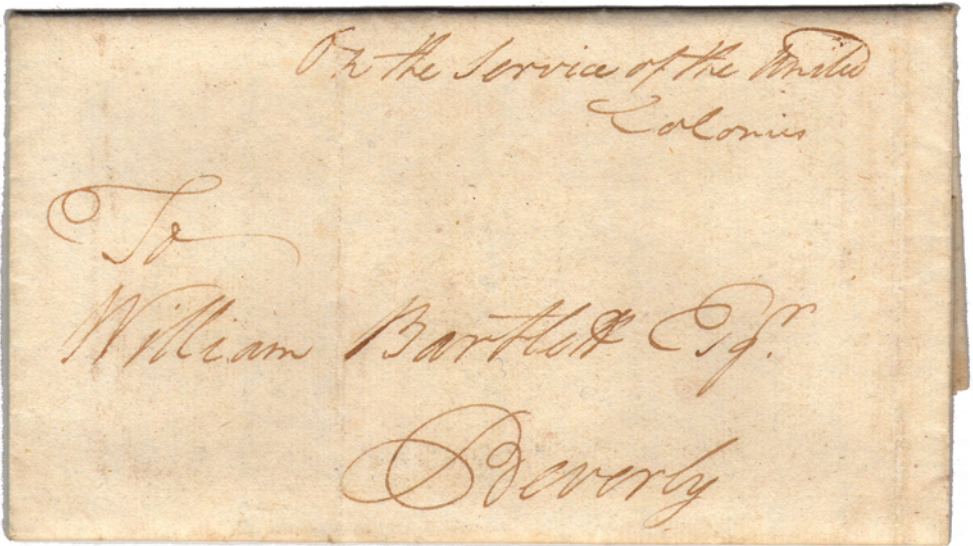 On the Service of the United
Colonies
To
William Bartlett Esqr.
Beverly